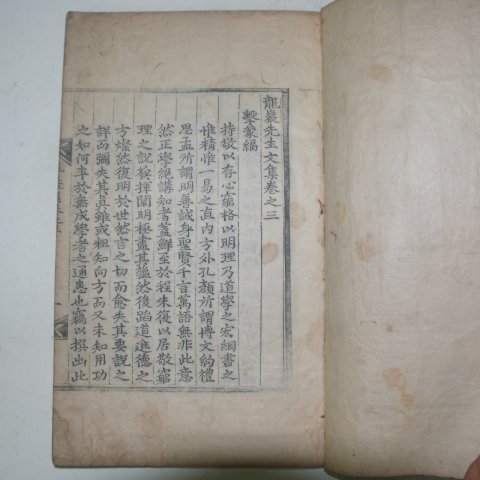 龍巖先生文集卷之三
擊蒙編
持敬以存心窮格以明理乃道學之宏綱書之
惟精惟一易之直內方外孔顏所謂博文約禮
思孟所謂明善誠身聖賢千言萬語無非此意
然正學絕講知者蓋鮮至於程朱復以居敬窮
理之說發揮闡明極盡其蘊然後蹈道進德之
方燦然復明於世然言之切而愈失其要說之
詳而彌失其真雖或粗知向方而又未知用功
之如何卒於無成學者之通患也竊以撰出此